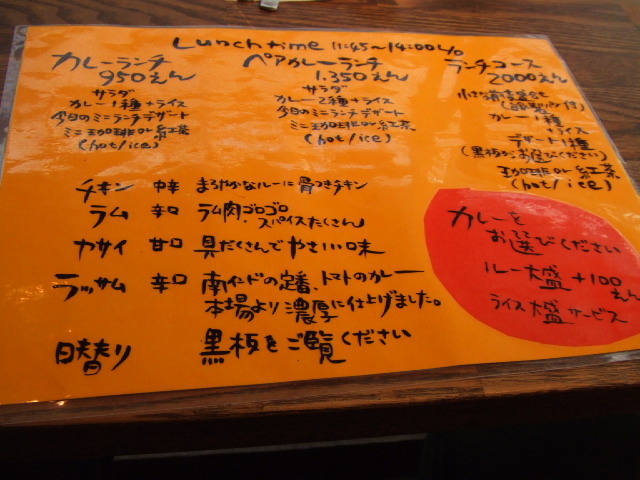 Lunch time 11:45~14:00 L/O
カレーランチ
950えん
サラダ
カレー1種+ライス
今日のミニランチデザート
ミニ珈琲 or 紅茶
(hot/ice)
ペアカレーランチ
1.350えん
サラダ
カレー2種+ライス
今日のミニランチデザート
ミニ珈琲 or 紅茶
(hot/ice)
ランチコース
2000えん
小さな前菜盛合せ
カレー1種
+ライス
デザート1種
(黒板からお選びください)
珈琲 or 紅茶
(hot/ice)
チキン 中辛 まろやかなルーに骨つきチキン
ラム 辛口 ラム肉ゴロゴロ
スパイスたくさん
ヤサイ 甘口 具だくさんでやさしい味
ラッサム 辛口 南インドの定番、トマトのカレー
本場より濃厚に仕上げました。
日替り 黒板をご覧ください
カレーを
お選びください
ルー大盛+100
えん
ライス大盛サービス